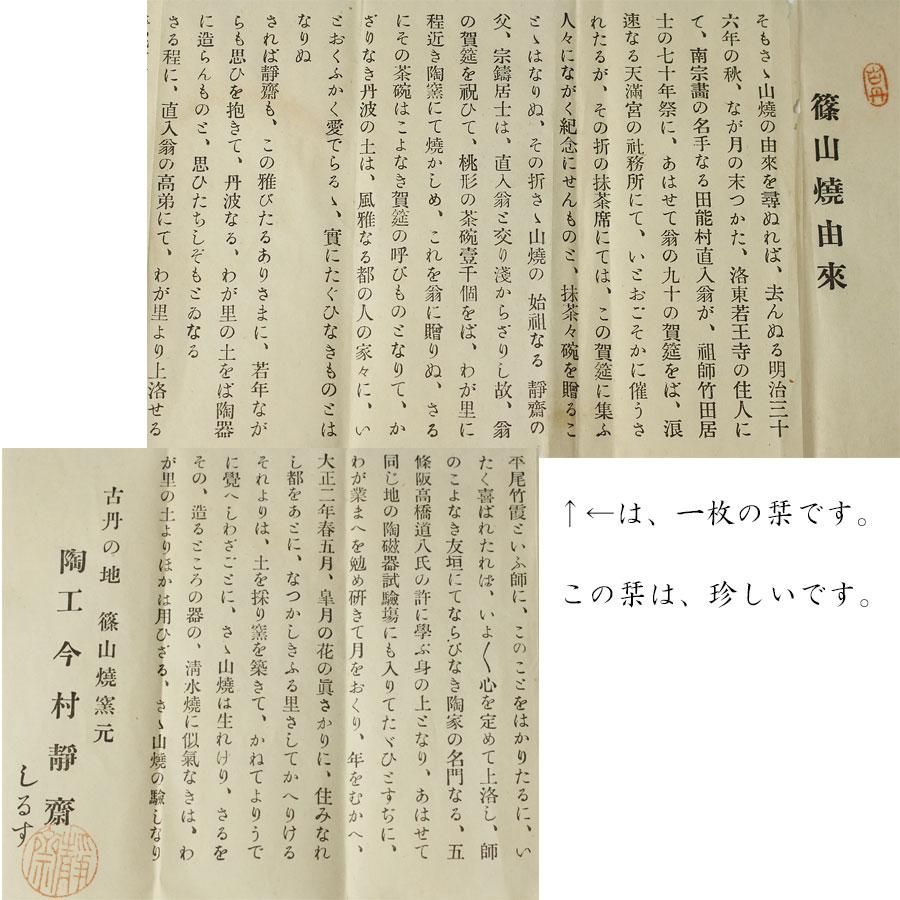 篠山燒由來
そもさゝ山燒の由來を尋ぬれば、去んぬる明治三十
六年の秋、なが月の末つかた、洛東若王寺の住人に
て、南宗畫の名手なる田能村直入翁が、祖師竹田居
士の七十年祭に、あはせて翁の九十の賀筵をば、浪
速なる天滿宮の社務所にて、いとおごそかに催うさ
れたるが、その折の抹茶席にては、この賀筵に集ふ
人々にながく紀念にせんものと、抹茶々碗を贈るこ
とゝはなりぬ、その折さゝ山燒の 始祖なる 靜齋の
父、宗鑄居士は、直入翁と交り淺からざりし故、翁
の賀筵を祝ひて、桃形の茶碗壹千個をば、わが里に
程近き陶窯にて燒かしめ、これを翁に贈りぬ、さる
にその茶碗はこよなき賀筵の呼びものとなりて、か
ざりなき丹波の土は、風雅なる都の人の家々に、い
とおくふかく愛でらるゝ、實にたぐひなきものとは
なりぬ
されば靜齋も、この雅びたるありさまに、若年なが
らも思ひを抱きて、丹波なる、わが里の土をば陶器
に造らんものと、思ひたちしぞもとゐなる
さる程に、直入翁の高弟にて、わが里より上洛せる
平尾竹霞といふ師に、このことをはかりたるに、い
たく喜ばれたれば、いよ〱心を定めて上洛し、師
のこよなき友垣にてならびなき陶家の名門なる、五
條阪高橋道八氏の許に學ぶ身の上となり、あはせて
同じ地の陶磁器試驗塲にも入りてたゞひとすぢに、
わが業まへを勉め硏きて月をおくり、年をむかへ、
大正二年春五月、皐月の花の眞さかりに、住みなれ
し都をあとに、なつかしきふる里さしてかへりける
それよりは、土を採り窯を築きて、かねてよりうで
に覺へしわざごとに、さゝ山燒は生れけり、さるを
その、造るところの器の、淸水燒に似氣なきは、わ
が里の土よりほかは用ひざる、さゝ山燒の驗しなり
古丹の地 篠山燒窯元
陶工今村靜齋
しるす
↑←は、一枚の栞です。
この栞は、珍しいです。